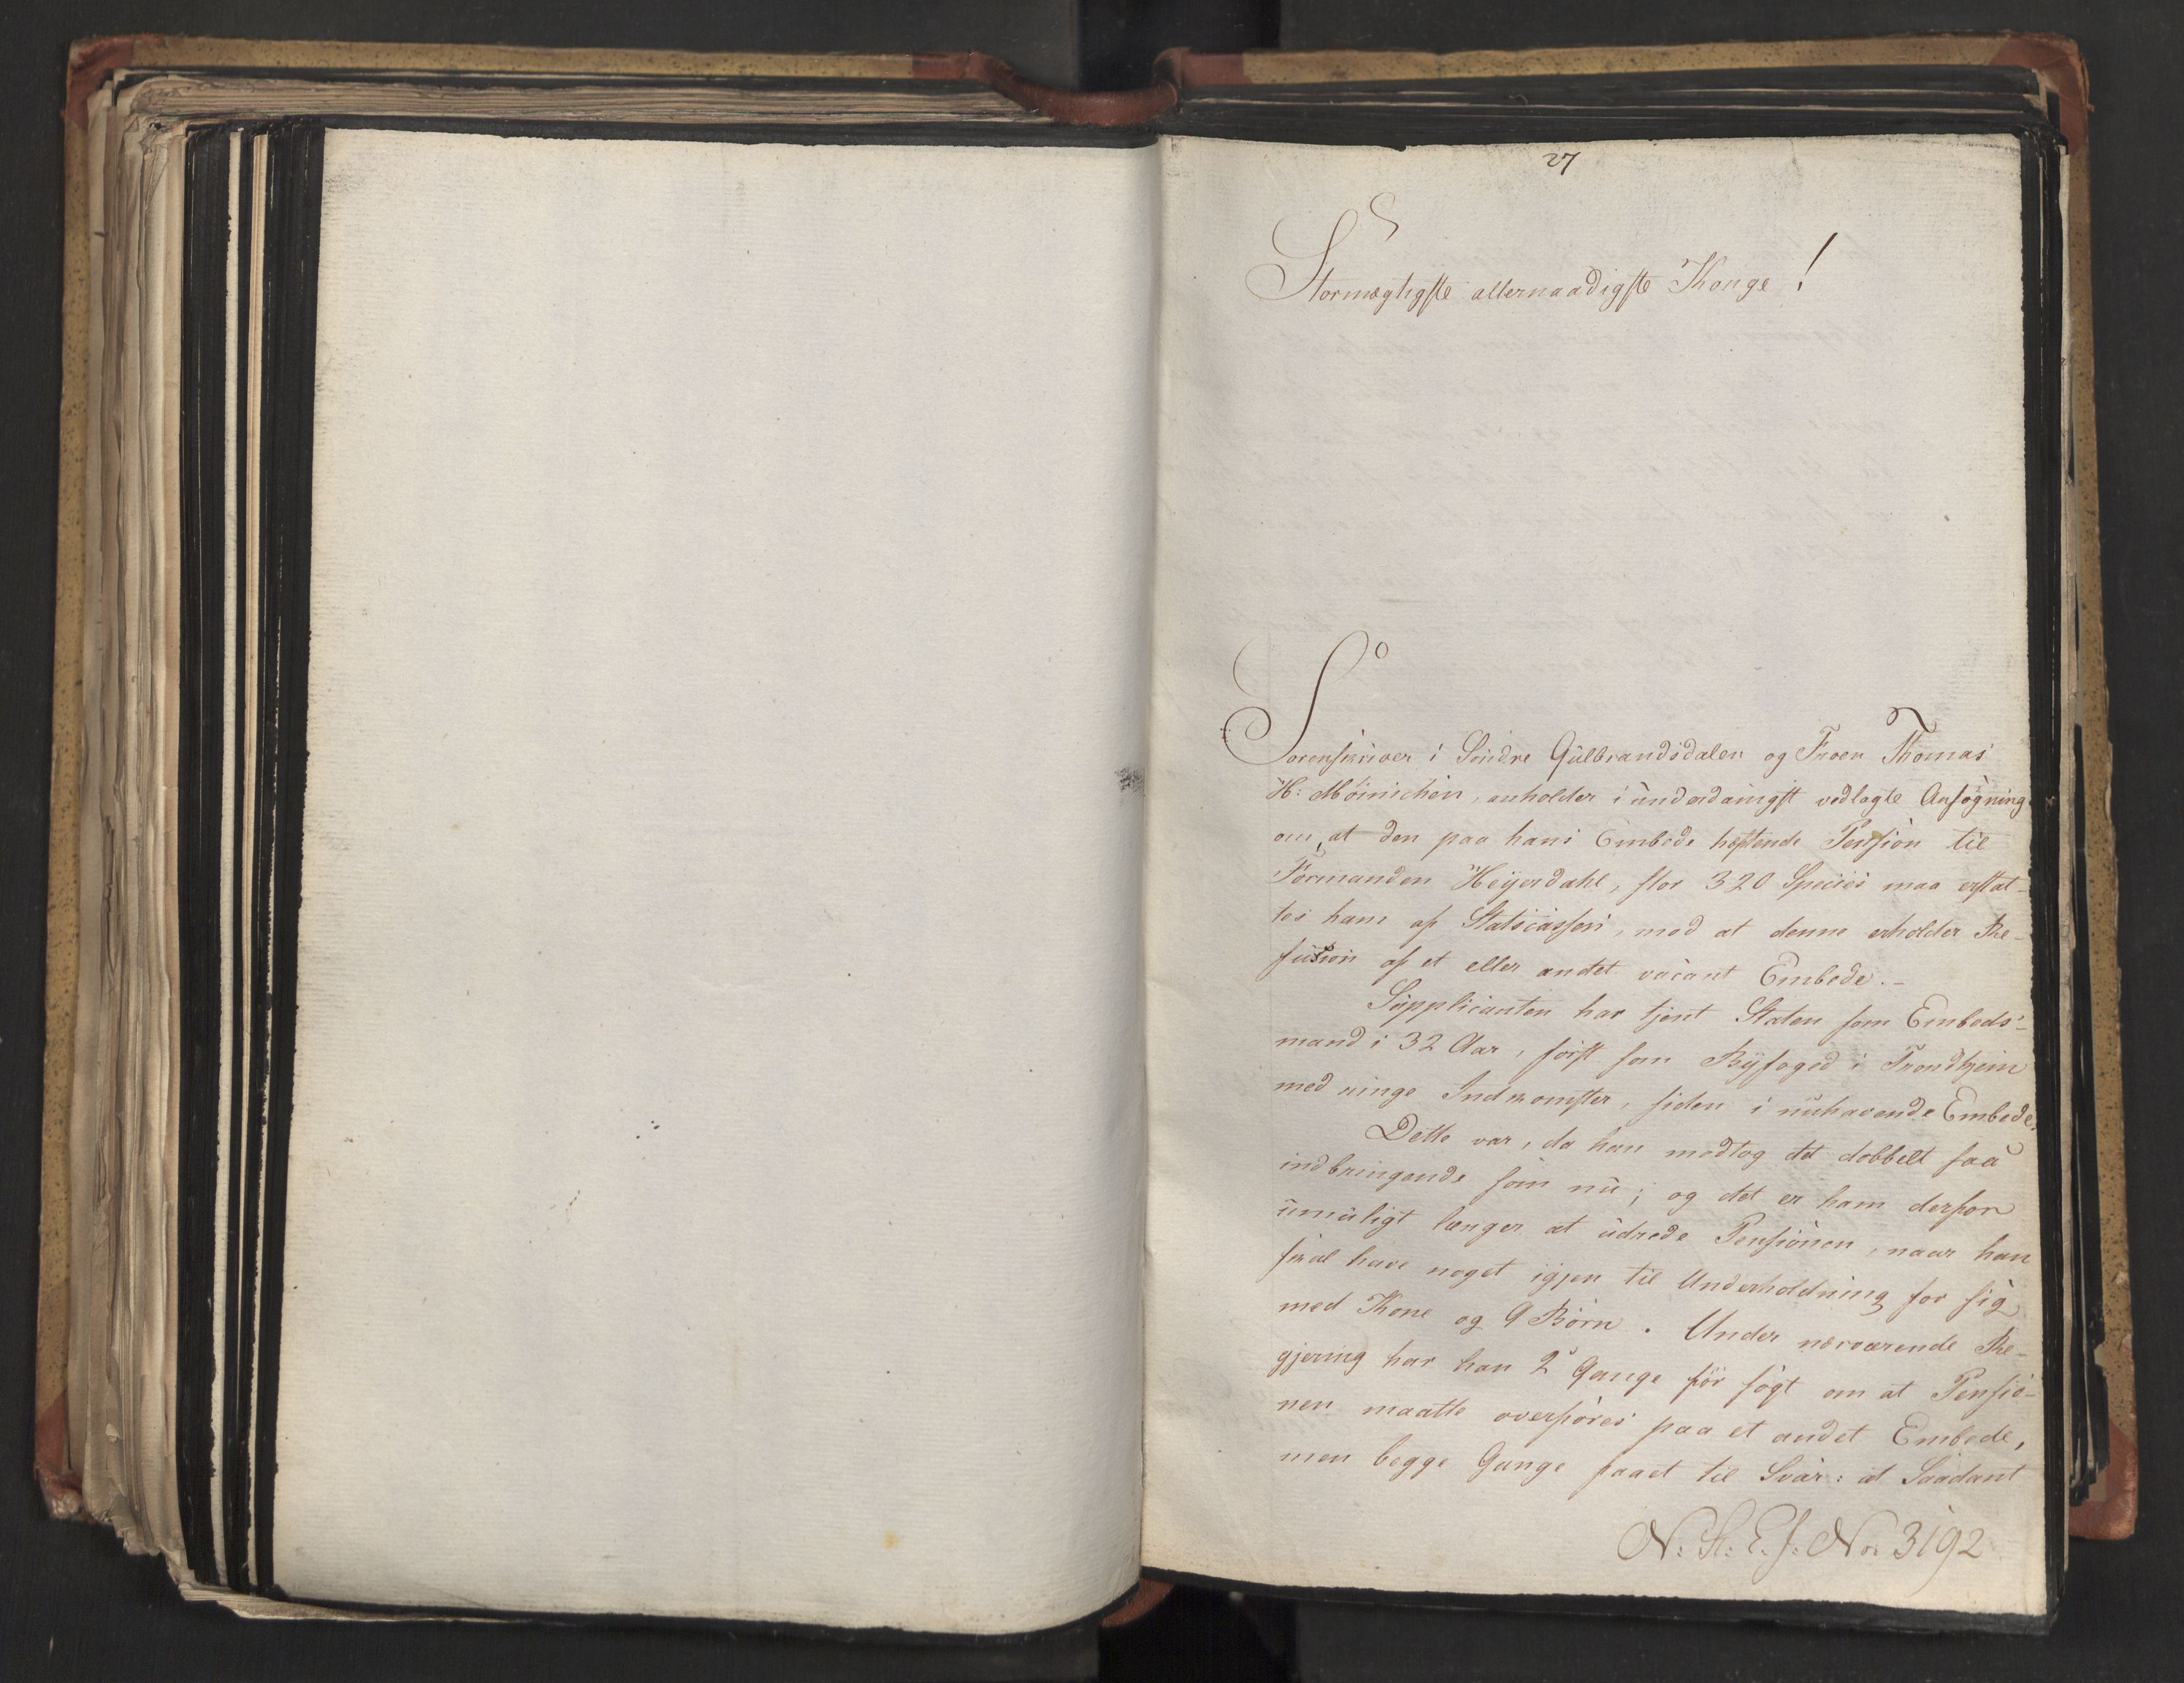 27
Stormægtigste allernaadigste Konge!
Sorenskriver i Søndre Gulbrandsdalen og Froen Thomas
H: Møinichen, anholder i underdanigst vedlagte Ansøgning
om, at den paa hans Embede heftende Pension til
Formanden Heyerdahl, stor 320 Species maa erstat-
tes ham af Statscassen, mod at denne erholder Re-
fusion af et eller andet vacant Embede.-
Supplicanten har tjent Staten som Embeds-
mand i 32 Aar, først som Byfoged i Trondhjem
med ringe Indkomster, siden i nuhavende Embede.
Dette var, da han modtog det dobbelt saa
indbringende som nu; og det er ham derfor
umuligt længer at udrede Pensionen, naar han
skal have noget igjen til Underholdning for sig
med Kone og 9 Børn. Under nærværende Re-
gjering har han 2de Gange før søgt om at Pensio-
nen maatte overføres paa et andet Embede,
men begge Gange faaet til Svar: at Saadant
N: St: E. J: No 3192